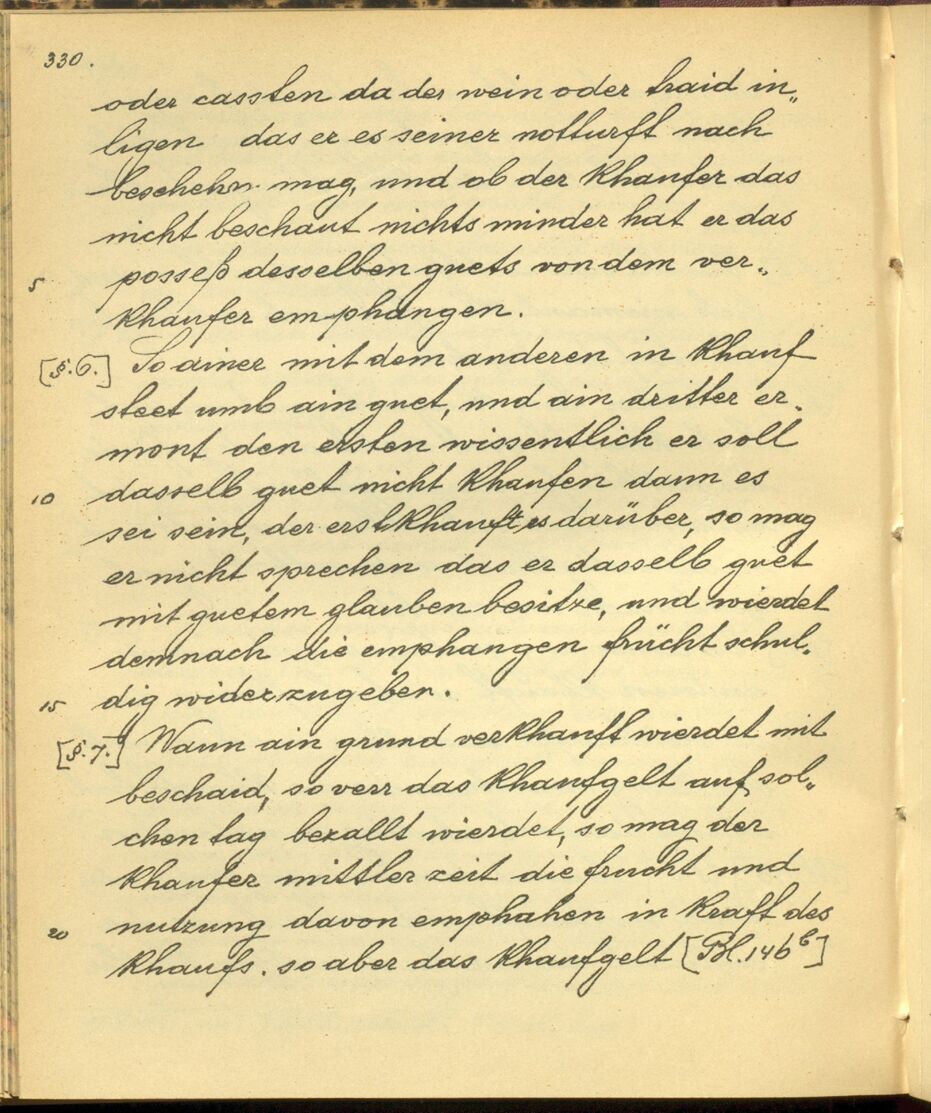 330.
oder cassten da der wein oder traid in„
ligen das er es seiner notturft nach
beschehn mag, und ob der Khaufer das
nicht beschaut nichts minder hat er das
5 posseß desselben guets von dem ver„
Khaufer emphangen.
[§.6.] So ainer mit dem anderen in Khauf
steet umb ain guet, und ain dritter er„
mont den ersten wissentlich er soll
10 dasselb guet nicht Khaufen dann es
sei sein, der erst Khauft es darüber, so mag
er nicht sprechen das er dasselb guet
mit guetem glauben besitze, und wierdet
demnach die emphangen frücht schul„
15 dig widerzugeben.
[§.7.] Wann ain grund verkhauft wierdet mit
beschaid, so verr das Khaufgelt auf sol„
chen tag bezallt wierdet, so mag der
Khaufer mittler zeit die frucht und
20 nutzung davon emphahen in Kraft des
Khaufs. so aber das Khaufgelt [Bl. 146ᵇ]